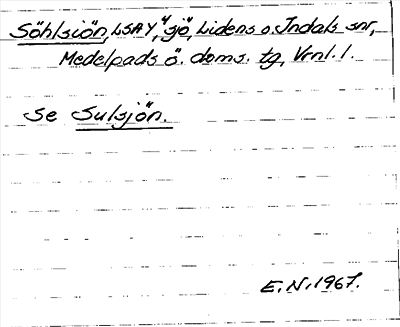 Söhlsiön, LSAY, "sjö", Lidens o. Indals snr,
Medelpads ö. doms. tg, Vrnl. l.
se Sulsjön.
E. N. 1967.